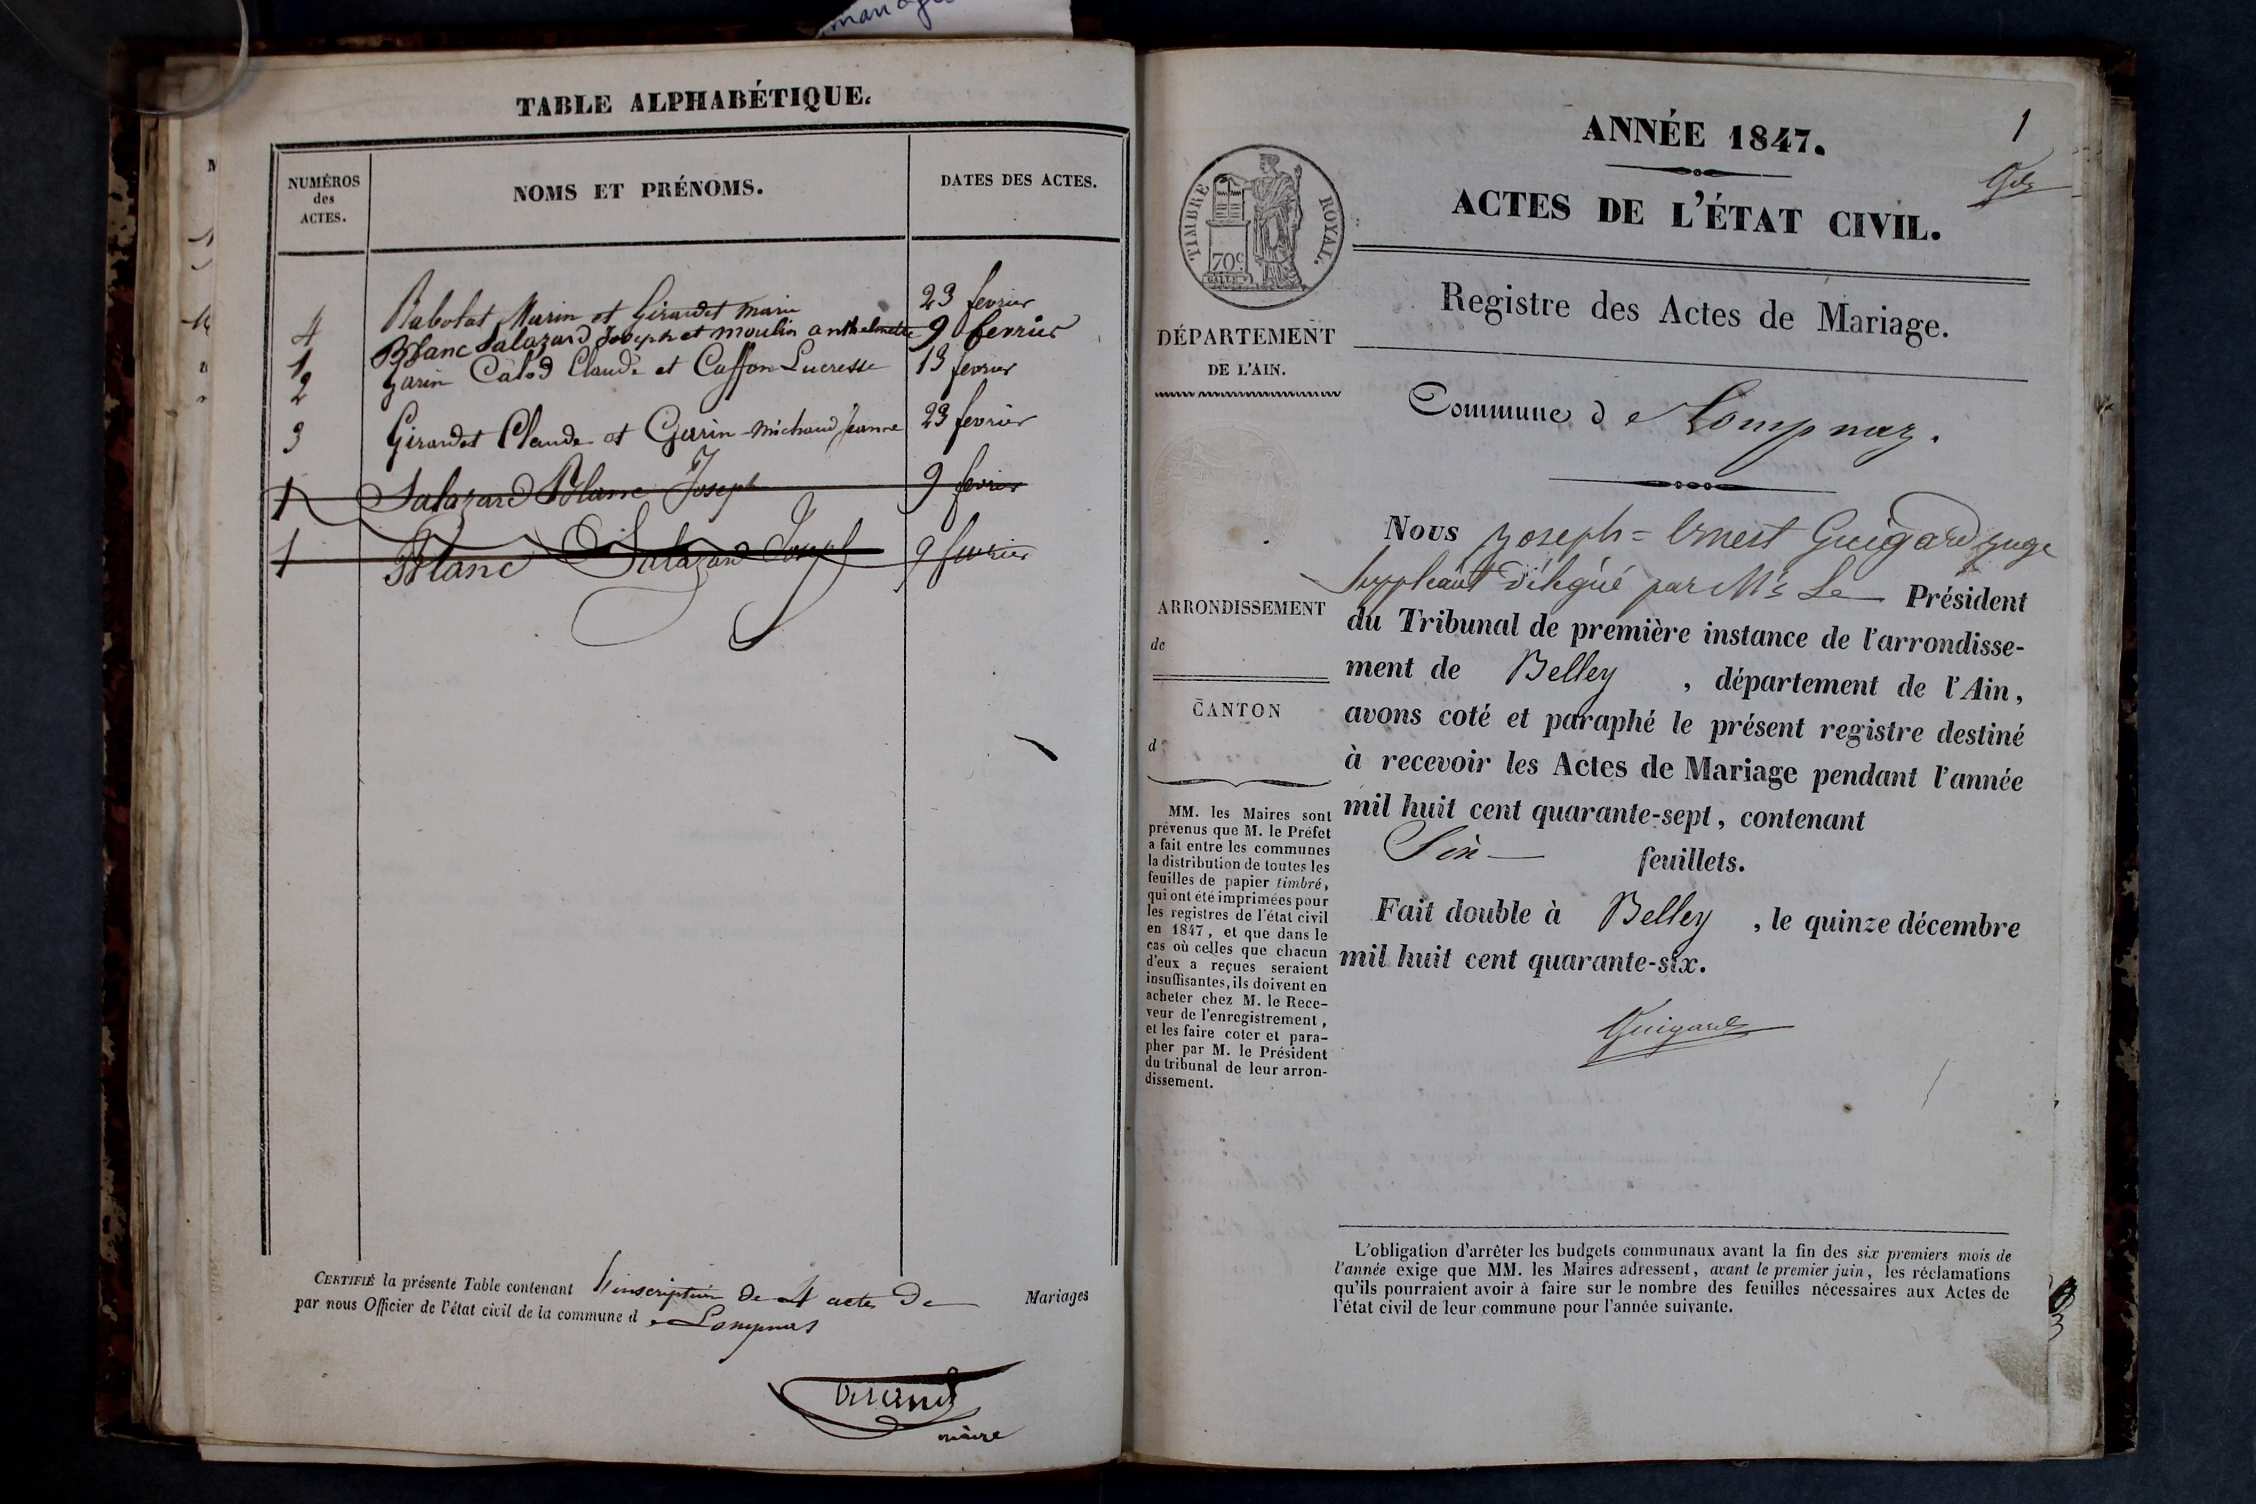 TABLE ALPHABÉTIQUE.
NUMÉROS
des
ACTES.
NOMS ET PRÉNOMS.
DATES DES ACTES.
4 Rabotat Marin et Girardet marie 23 fevrier
1 Blanc Salazard Joseph et moulin anthelmette 9 fevrier
2 garin Calod Claude et Caffon Lucresse 13 fevrier
3 Girardet Claude et Garin-michaud Jeanne 23 fevrier
1 Salazard Blanc Joseph 9 fevrier
1 Blanc Salazard Joseph 9 fevrier
CERTIFIÉ la présente Table contenant l'inscription de 4 actes De Mariages
par nous Officier de l'état civil de la commune d e Lompnas
maire
ANNÉE 1847.
1
ACTES DE L'ÉTAT CIVIL.
TIMBRE ROYAL.
70c
Registre des Actes de Mariage.
DÉPARTEMENT
DE L'AIN.
Commune d e Lompnaz.
Nous Joseph=Ernest Guigard juge
suppléant délégué par Mr Le Président
du Tribunal de première instance de l'arrondisse-
ment de Belley, département de l'Ain,
avons coté et paraphé le présent registre destiné
à recevoir les Actes de Mariage pendant l'année
mil huit cent quarante-sept, contenant
Six feuillets.
Fait double à Belley, le quinze décembre
mil huit cent quarante-six.
Guigard
ARRONDISSEMENT
de
CANTON
d
MM. les Maires sont
prévenus que M. le Préfet
a fait entre les communes
la distribution de toutes les
feuilles de papier timbré,
qui ont été imprimées pour
les registres de l'état civil
en 1847, et que dans le
cas où celles que chacun
d'eux a reçues seraient
insuffisantes, ils doivent en
acheter chez M. le Rece-
veur de l'enregistrement,
et les faire coter et para-
pher par M. le Président
du tribunal de leur arron-
dissement.
L'obligation d'arrêter les budgets communaux avant la fin des six premiers mois de
l'année exige que MM. les Maires adressent, avant le premier juin, les réclamations
qu'ils pourraient avoir à faire sur le nombre des feuilles nécessaires aux Actes de
l'état civil de leur commune pour l'année suivante.